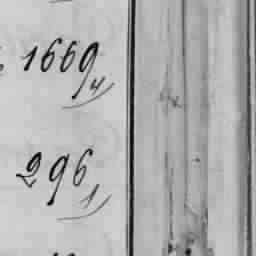 1669 4
296 1